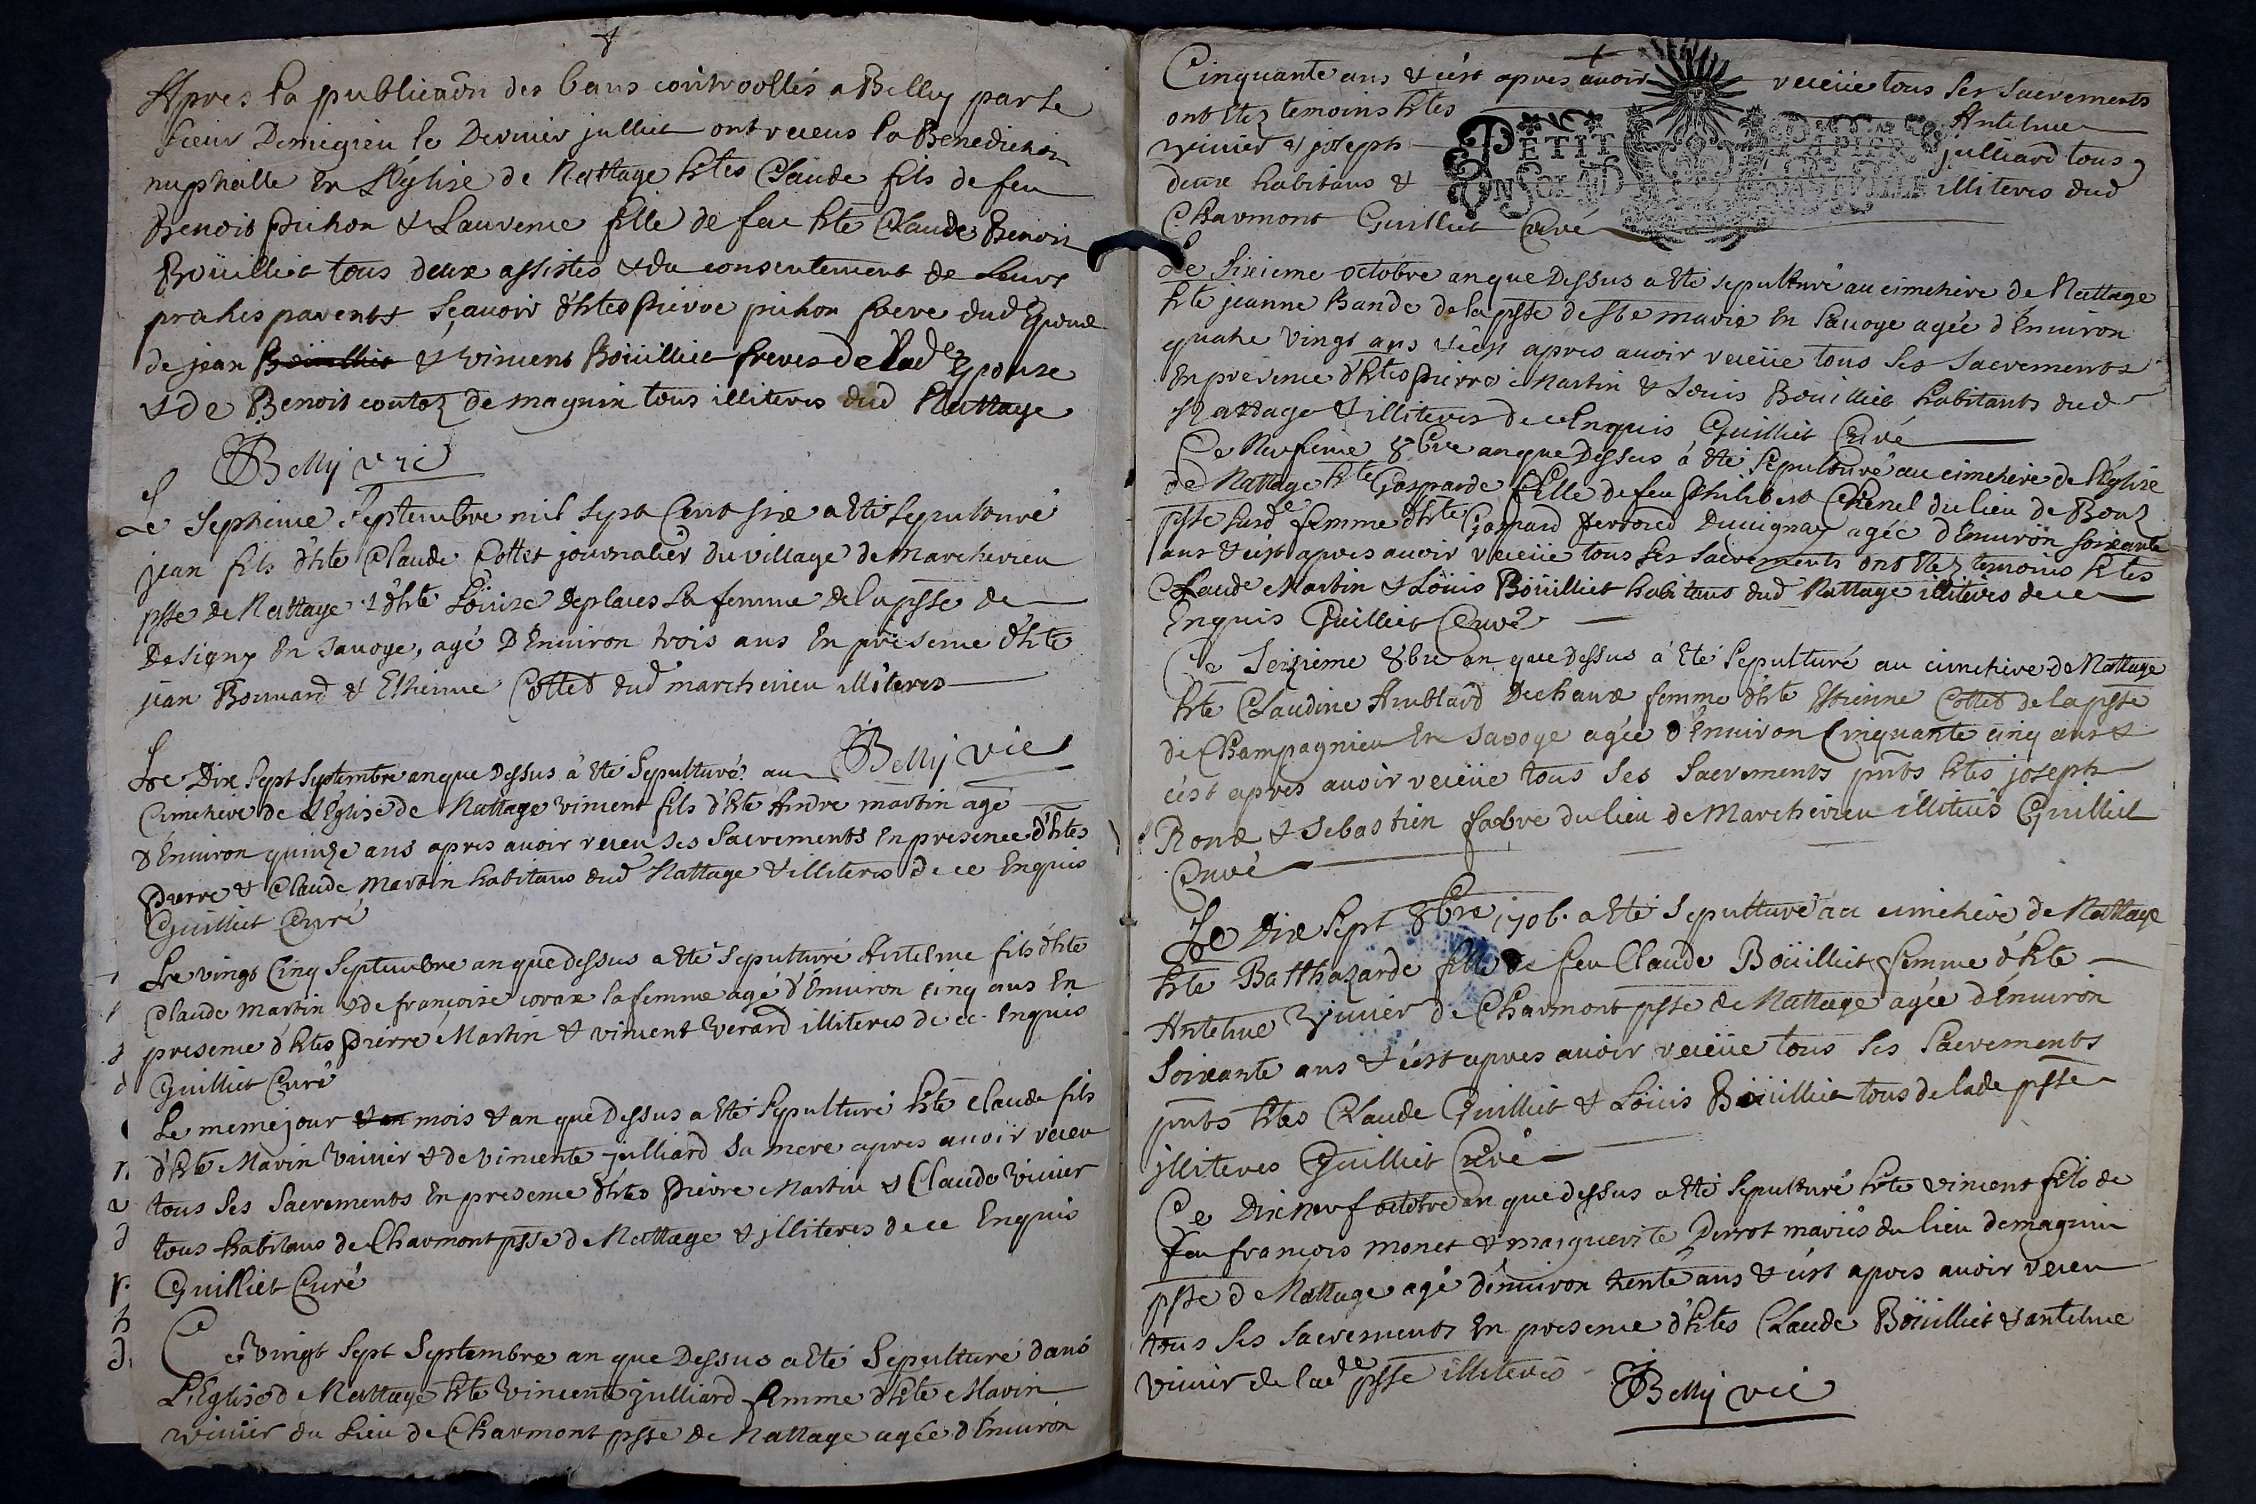 Apres la publicaôn des bans controollés a Belley par le
sieur Demigieu le Dernier julliet ont receus la Benediction
nuphialle En L'Eglise de Nattage htes Claude fils de feu
Benoit Pichon & Laurence fille de feu hte Claude Benoit
Boüilliet tous deux assistes & du consentement de Leurs
prochés parents Sçavoir d'htes Pierre pichon frere dud Epoux
de jean Boüilliet & vincent Boüilliet freres de lad.e Epouse
& de Benoit coutoz de magnin tous illiteres dud Nattage
Belly vic
Le Septieme Septembre mil Sept Cent six a Eté Sepulturé
jean fils d'hte Claude Cottet journalier du village de marchevieu
psse de Nattage & d'hte Loüize Deplaces sa femme de la psse de
Designy En Savoye, agé D'Environ trois ans En présence d'hte
jean Bonnard & Ethienne Cottet dud marchevieu illiteres
Belly vic
Le Dix Sept Septembre an que Dessus à Eté Sepulturé au
Cimetiere de L'Eglise de Nattage vincent fils d'hte Andre martin agé
d'Environ quinze ans apres avoir receu ses Sacrements En présence d'htes
Pierre & Claude Martin habitans dud Nattage & illiteres de ce Enquis
Guilliet Curé
Le vingt Cinq Septembre an que dessus a Eté Sepulturé Antelme fils d'hte
Claude Martin & de françoise corax sa femme agé d'Environ cinq ans En
presence d'htes Pierre Martin & vincent Verard illiteres de ce Enquis
Guilliet Curé
Le meme jour & an mois & an que Dessus a Eté Sepulturé hte Claude fils
d'hte Marin Vivier & de vincente julliard sa mere apres avoir receu
tous ses Sacrements En presence d'htes Pierre Martin & Claude Vivier
tous habitans de Charmont psse de Nattage & jlliteres de ce Enquis
Guilliet Curé
Ce vingt Sept Septembre an que Dessus a Eté Sepulturé dans
L'Eglise de Nattage hte Vincente julliard femme d'hte Marin
vivier du Lieu de Charmont psse de Nattage agée d'Environ
Cinquante ans & c'est apres avoir receüe tous ses Sacrements
ont Etez temoins htes Antelme
vivier & joseph julliard tous
deux habitans & illiteres dud
Charmont Guilliet Curé
PETIT PAPIER
UN SOL
Le Sixieme octobre an que Dessus a Eté sepulturé au cimetiere de Nattage
hte jeanne Bande de la psse de Ste marie En Savoye agée d'Environ
quatre Vingt ans & c'est apres avoir receüe tous ses Sacrements
En présence d'htes Pierre Martin & Louis Boüilliet habitants dud
Nattage & illiteres de ce Enquis Guilliet Curé
Ce Neufieme 8bre an que Dessus à Eté Sepulturé au cimetiere de L'Eglise
de Nattage hte Gasparde fille de feu Philibert Chenel du lieu de Bonz
psse susd.e femme d'hte Gaspard Perroud Duvignay agée d'Environ soixante
ans & c'est apres avoir receüe tous ses Sacrements ont Etez temoins htes
Claude Martin & Loüis Boüilliet habitans dud Nattage illiteres de ce
Enquis Guilliet Curé
Ce Seizieme 8bre an que Dessus à Eté Sepulturé au cimetiere de Nattage
hte Claudine Amblard Dechaux femme d'hte Estienne Cottet de la psse
de Champagnieu En Savoye agée d'Environ Cinquante cinq ans &
c'est apres avoir receüe tous ses Sacrements pnts htes joseph
Roux & Sebastien fabvre du lieu de Marchevieu illiteres Guilliet
Curé
Le Dix Sept 8bre 1706. a Eté Sepulturé au cimetiere de Nattage
hte Balthazarde fille de feu Claude Boüilliet femme d'hte
Antelme Vivier de Charmont psse de Nattage agée d'Environ
Soixante ans & c'est apres avoir receüe tous ses Sacrements
pnts htes Claude Guilliet & Loüis Boüilliet tous de lade psse
jlliteres Guilliet Curé
Ce Dix neuf octobre an que dessus a Eté Sepulturé hte vincent fils de
feu françois monet & marguerite Perrot mariés du lieu demagnin
psse de Nattage agé d'environ trente ans & c'est apres avoir receu
tous ses Sacrements En presence d'htes Claude Boüilliet & antelme
vivier de lad.e psse illiteres
Belly vic